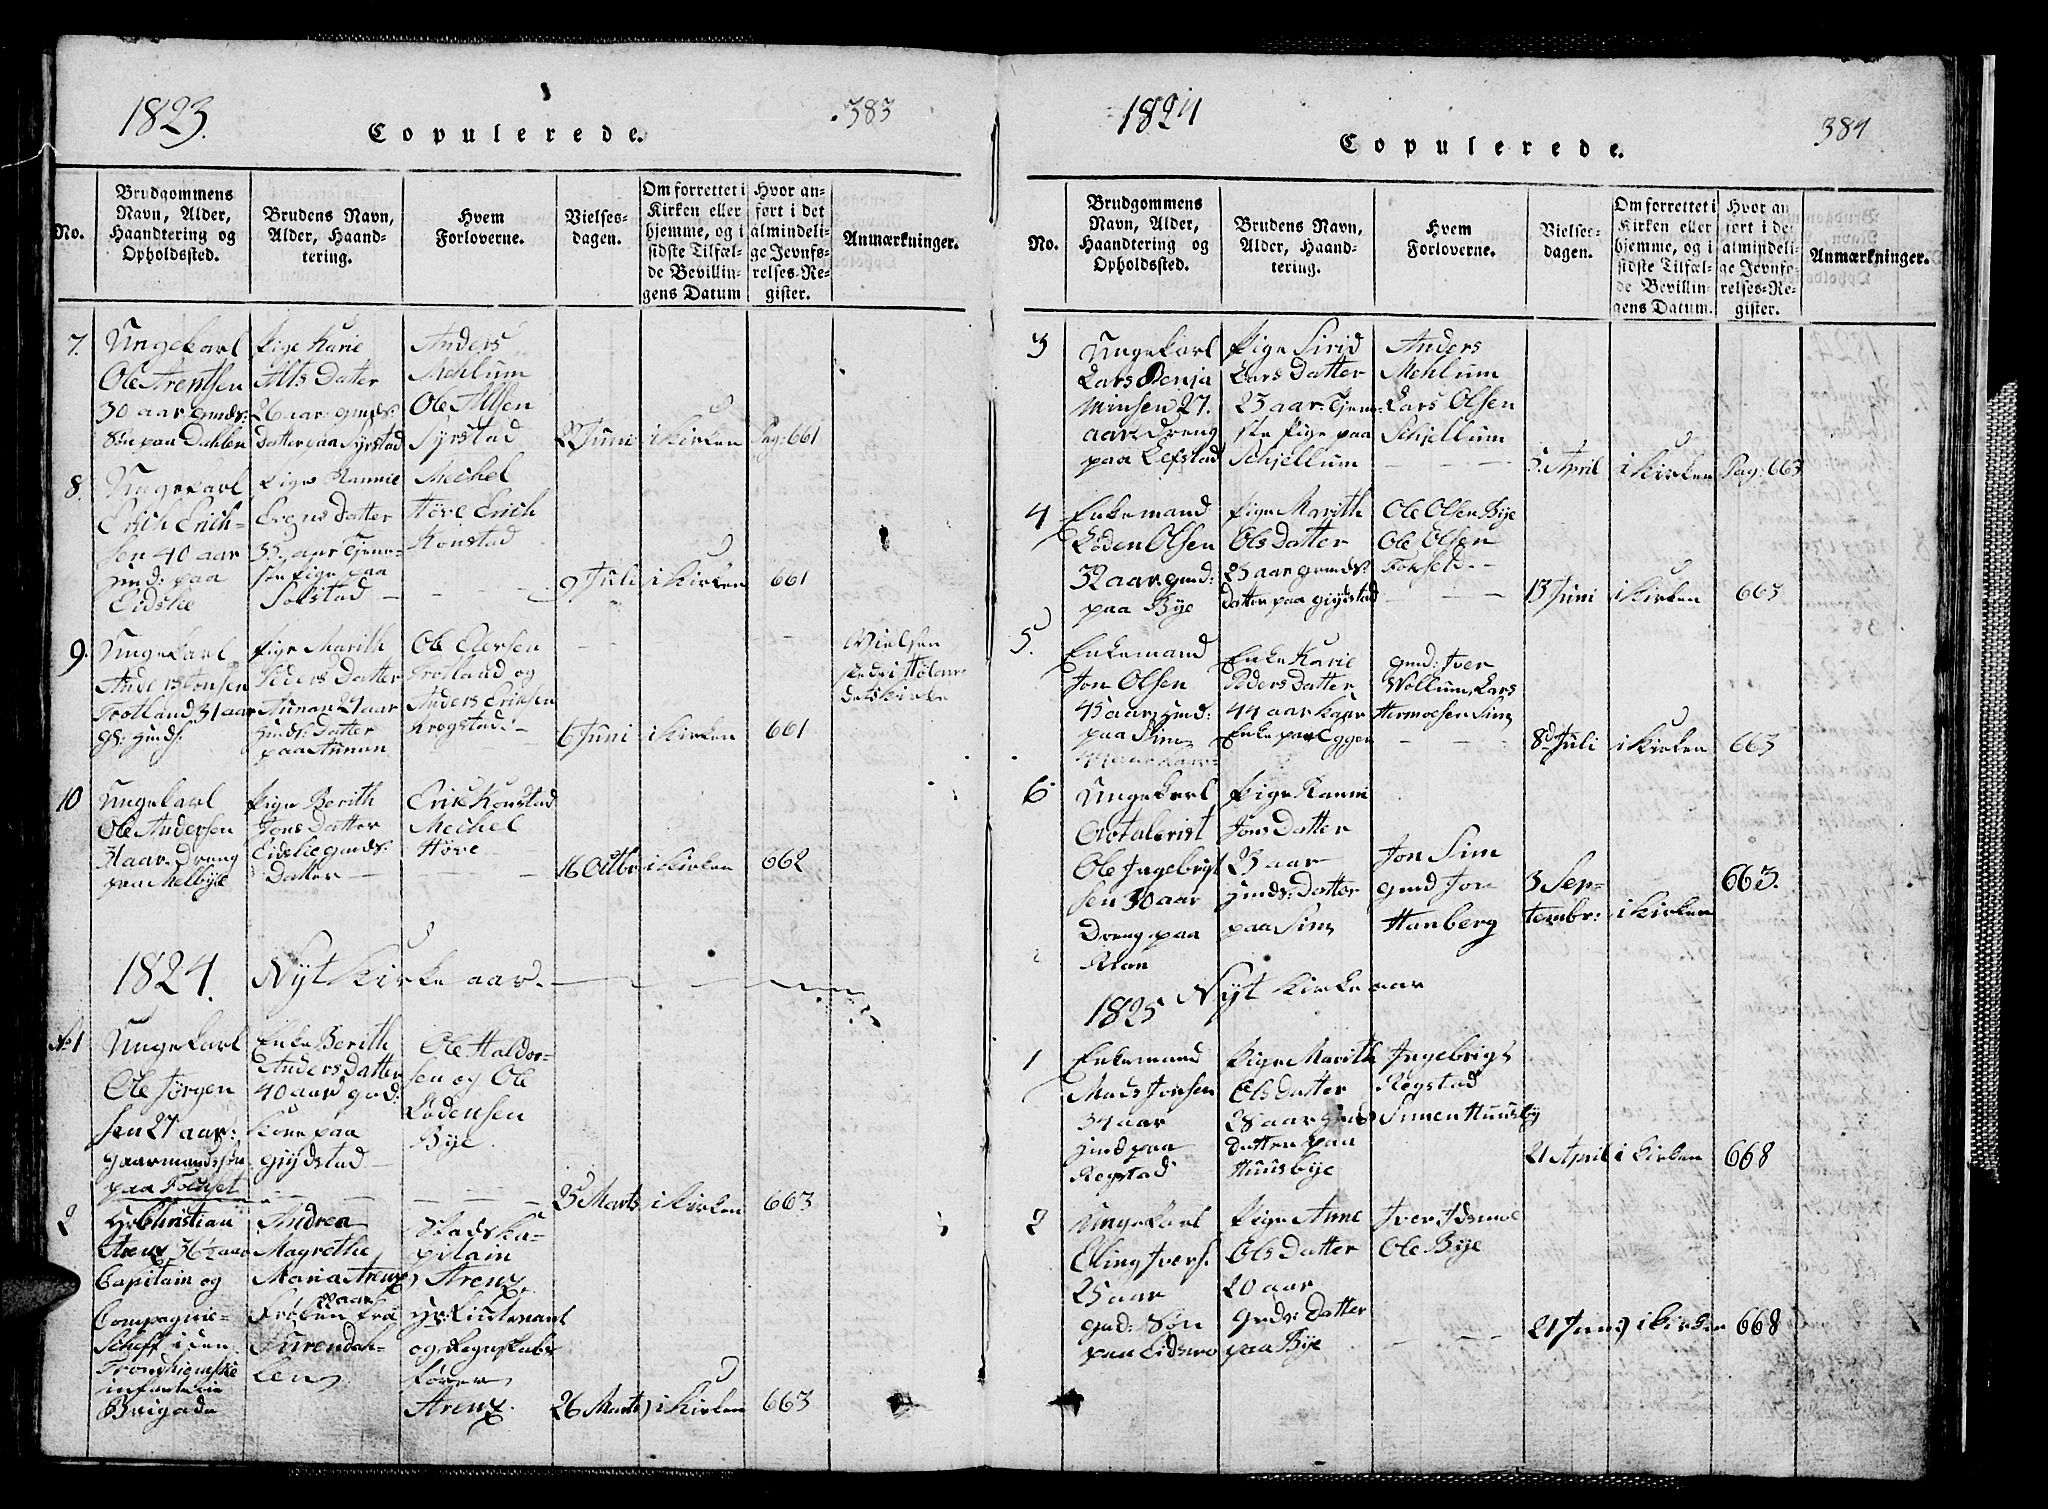 1823.
383
Copulerede.
No.
Brudgommens Navn, Alder, Haandtering og Opholdssted.
Brudens Navn, Alder, Haandtering.
Hvem Forloverne.
Vielsesdagen.
Om forrettet i Kirken eller hjemme, og i sidste Tilfælde Bevillingens Datum
Hvor anført i det almindelige Jevnførelses-Register.
Anmærkninger.
7.
Ungekarl
Ole Arentsen
30 aar gmds:
Søn paa Dahlen
Pige Karie
Alts Datter
26 aar gmds:
Datter paa Syrstad
Anders
Mehlum
Ole Alfsen
Syrstad
2 Juni
i Kirken
Pag: 661
8.
Ungekarl
Erich Erich-
sen 40 aar
gmd: paa
Eidslie
Pige Rannie
Erens Datter
33 aar Tjene-
ste Pige paa
Solstad
Mechel
Høve Erich
Konstad
9 Juli
i Kirken
661
9.
Ungekarl
Anders Jonsen
Trotland 31 aar
gs: gmds:
Pige Marith
Peders Datter
Aunan 24 aar
gmds: Datter
paa Aunan
Ole Edersen
Trotland og
Anders Eriksen
Krogstad
6 Juni
i Kirken
661
Vielsen
skede i Hølan-
dets Kirke
10
Ungekarl
Ole Andersen
31 aar Dreng
paa Melbye
Pige Berith
Jons Datter
Eidslie gmds:
Datter
Erik Konstad
Mechel
Høve
16 Octbr
i Kirken
662
1824. Nyt Kirke aar.
No 1
Ungekarl
Ole Jørgen
sen 27 aar:
gaarmandssøn
paa Foshset
Enke Berith
Anders Datter
40 aar gmd:
Kone paa
Grydstad
Ole Haldor-
sen og Ole
Lodensen
Bye
25 Marts
i Kirken
663
2
Hr Christian
Arenz 36½ aar
Capitain og
Compagnie-
Scheff i den
Trondhiemske
infanterie
Brigade
Andrea
Magrethe
Maria Arenz
Frøken fra
Surendah-
len
Stadska-
pitain
Arenz
Hr: Lieutenant
og Regnskabs
fører
Arenz.
26 Marts
i Kirken
663
1824
384
Copulerede.
No.
Brudgommens Navn, Alder, Haandtering og Opholdssted.
Brudens Navn, Alder, Haandtering.
Hvem Forloverne.
Vielsesdagen.
Om forrettet i Kirken eller hjemme, og i sidste Tilfælde Bevillingens Datum.
Hvor anført i det almindelige Jevnførelses-Register.
Anmærkninger.
3
Ungekarl
Lars Benja
minsen 27.
aar Dreng
paa Lefstad
Pige Sirid
Lars Datter
23 aar Tjene-
ste Pige paa
Schjellum
Anders
Mehlum
Lars Olsen
Schjellum
5 April
i Kirken
Pag: 663
4
Enkemand
Loden Olsen
32 aar gmd:
paa Bye
Pige Marith
Ols Datter
23 aar gmds:
Datter paa Grydstad
Ole Olsen Bye
Ole Olsen
13 Juni
i Kirken
663
5.
Enkemand
Jon Olsen
45 aar gmd:
paa Sim
Enke Karie
Peders Datter
44 aar
Enke paa Eggen
gmd: Iver
Wollum, Lars
Hermoesen Sim
8d Juli
i Kirken
663
6
Ungekarl
Ole Ingebrigt
sen 30 aar
Dreng paa
Pige Ranni
Jons Datter
23 aar
gmds: Datter
paa Sim
Jon Sim
gmd Jon
Hanberg
3 Sep-
tembr:
i Kirken
663.
1825 Nyt Kirke aar
1
Enkemand
Mads Jonsen
34 aar
gmd paa
Rogstad
Pige Marith
Ols Datter
28 aar gmds
Datter paa
Huusbye
Ingebrigt
Rogstad
Simen Huusby
21 April
i Kirken
668
2
Ungekarl
Elling Ivers.
25 aar
gmd: Søn
paa Eidsmo
Pige Anne
Ols Datter
20 aar
gmds: Datter
paa Bye
Iver Idsmoe
Ole Bye
21 Juni
i Kirken
668